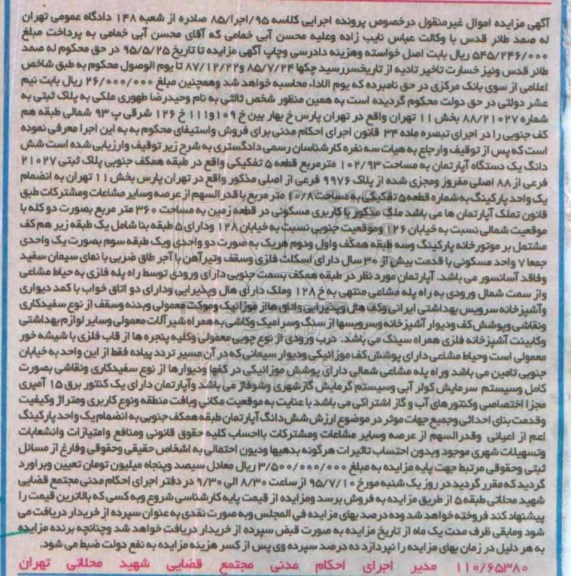 آگهی مزایده اموال غیرمنقول درخصوص پرونده اجرایی کلاسه ۸۵/اجرا/۹۵ صادره از شعبه ۱۴۸ دادگاه عمومی تهران
له صمد طائر قدس با وکالت عباس نایب زاده وعلیه محسن آبی خمامی که آقای محسن آبی خمامی به پرداخت مبلغ
۵۴۵/۲۴۶/۰۰۰ ریال بابت اصل خواسته وهزینه دادرسی وچاپ آگهی مزایده تا تاریخ ۹۵/۵/۲۵ در حق محکوم له صمد
طائر قدس ونیز خسارت تاخیر تادیه از تاریخ سررسید چکها ۸۵/۷/۲۴ و ۸۷/۱۲/۲۲ تا یوم الوصول محکوم به طبق شاخص
اعلامی از سوی بانک مرکزی در حق نامبرده که یوم الاداء محاسبه خواهد شد وهمچنین مبلغ ۲۶/۰۰۰/۰۰۰ ریال بابت نیم
عشر دولتی در حق دولت محکوم گردیده است به همین منظور شخص ثالثی به نام وحیدرضا طهوری ملکی به پلاک ثبتی به
شماره ۸۸/۲۱۰۲۷ بخش ۱۱ تهران واقع در تهران پارس خ بهار بین خ ۱۰۹ و ۱۱۱ خ ۱۲۶ شرقی پ ۹۳ شمالی طبقه هم
کف جنوبی را در اجرای تبصره ماده ۳۴ قانون اجرای احکام مدنی برای فروش واستیفای محکوم به به این اجرا معرفی نموده
است که پس از توقیف وارجاع به هیات سه نفره کارشناسان رسمی دادگستری به شرح زیر توقیف وارزیابی شده است شش
دانگ یک دستگاه آپارتمان به مساحت ۱۰۲/۹۳ مترمربع قطعه ۵ تفکیکی واقع در طبقه همکف جنوبی پلاک ثبتی ۲۱۰۲۷
فرعی از ۸۸ اصلی مفروز ومجزی شده از پلاک ۹۹۷۶ فرعی از اصلی مذکور واقع در تهران پارس بخش ۱۱ تهران به انضمام
یک واحد پارکینگ به شماره قطعه ۵ تفکیکی به مساحت ۱۰/۸ متر مربع با قدرالسهم از عرصه وسایر مشاعات ومشترکات طبق
قانون تملک آپارتمان ها می باشد ملک مذکور با کاربری مسکونی در قطعه زمین به مساحت ۳۶۰ متر مربع بصورت دو کله با
موقعیت شمالی نسبت به خیابان ۱۲۶ وموقعیت جنوبی نسبت به خیابان ۱۲۸ ودارای ۵ طبقه بنا شامل یک طبقه زیر هم کف
مشتمل بر موتورخانه پارکینگ وسه طبقه همکف واول ودوم هریک به صورت دو واحدی ویک طبقه سوم بصورت یک واحدی
جمعا ۷ واحد مسکونی با قدمت بیش از ۳۰ سال دارای اسکلت فلزی وسقف وتیرآهن با آجر طاق ضربی با نمای سیمان سفید
وفاقد آسانسور می باشد. آپارتمان مورد نظر در طبقه همکف بسمت جنوبی دارای ورودی توسط راه پله فلزی به حیاط مشاعی
واز سمت شمال ورودی به راه پله مشاعی منتهی به خ ۱۲۸ وملک دارای هال وپذیرایی ودارای دو اتاق خواب با کمد دیواری
وآشپزخانه سرویس بهداشتی ایرانی وکف هال وپذیرایی واتاق هااز موزائیک وموکت معمولی وبدنه وسقف از نوع سفیدکاری
ونقاشی وپوشش کف ودیوار آشپزخانه وسرویسها از سنگ وسرامیک وکاشی به همراه شیرآلات معمولی وسایر لوازم بهداشتی
وکابینت آشپزخانه فلزی همراه سینک می باشد. درب ورودی از نوع چوبی معمولی وکلیه پنجره ها از قاب فلزی با شیشه خور
معمولی است وحیاط مشاعی دارای پوشش کف موزائیکی ودیوار سیمانی که در آن مسیر تردد پیاده فقط از این واحد به خیابان
جنوبی تامین می باشد وراه پله مشاعی شمالی دارای پوشش موزائیکی در کفها ودیوارها از نوع سفیدکاری ونقاشی بصورت
کامل وسیستم سرمایش کولر آبی وسیستم گرمایش گازشهری وشوفاژ می باشد وآپارتمان دارای یک کنتور برق ۱۵ آمپری
مجزا اختصاصی وکنتورهای آب و گاز اشتراکی می باشد با عنایت به موقعیت مکانی وبافت منطقه ونوع کاربری ومتراژ وکیفیت
وقدمت بنای احداثی وجمیع جهات موثر در موضوع ارزش شش دانگ آپارتمان طبقه همکف جنوبی به انضمام یک واحد پارکینگ
اعم از اعیانی وقدرالسهم از عرصه وسایر مشاعات ومشترکات بااحتساب کلیه حقوق قانونی ومنافع وامتیازات وانشعابات
وتسهیلات شهری موجود وبدون احتساب تاثیرات هرگونه بدهیها ودیون احتمالی به اشخاص حقیقی وحقوقی وفارغ از مسائل
ثبتی وحقوقی مرتبط جهت پایه مزایده به مبلغ ۳/۵۰۰/۰۰۰/۰۰۰ ریال معادل سیصد وپنجاه میلیون تومان تعیین وبرآورد
گردید که مقرر گردید در روز یک شنبه مورخ ۹۵/۷/۱۰ از ساعت ۸/۳۰ الی ۹/۳۰ در دفتر اجرای احکام مدنی مجتمع قضایی
شهید محلاتی طبقه ۵ از طریق مزایده به فروش برسد ومزایده از قیمت پایه کارشناسی شروع وبه کسی که بالاترین قیمت را
پیشنهاد کند فروخته خواهد شد وده درصد بهای مزایده فی المجلس وبه صورت نقدی به عنوان سپرده از خریدار دریافت می
شود ومابقی ظرف مدت یک ماه از تاریخ مزایده به صورت قبض سپرده از خریدار دریافت خواهد شد وچنانچه برنده مزایده
به هر دلیل در زمان بهای مزایده را نپردازد ده درصد سپرده وی پس از کسر هزینه مزایده به نفع دولت ضبط می شود.
۱۱۰/۶۵۳۸۰ مدیر اجرای احکام مدنی مجتمع قضایی شهید محلاتی تهران